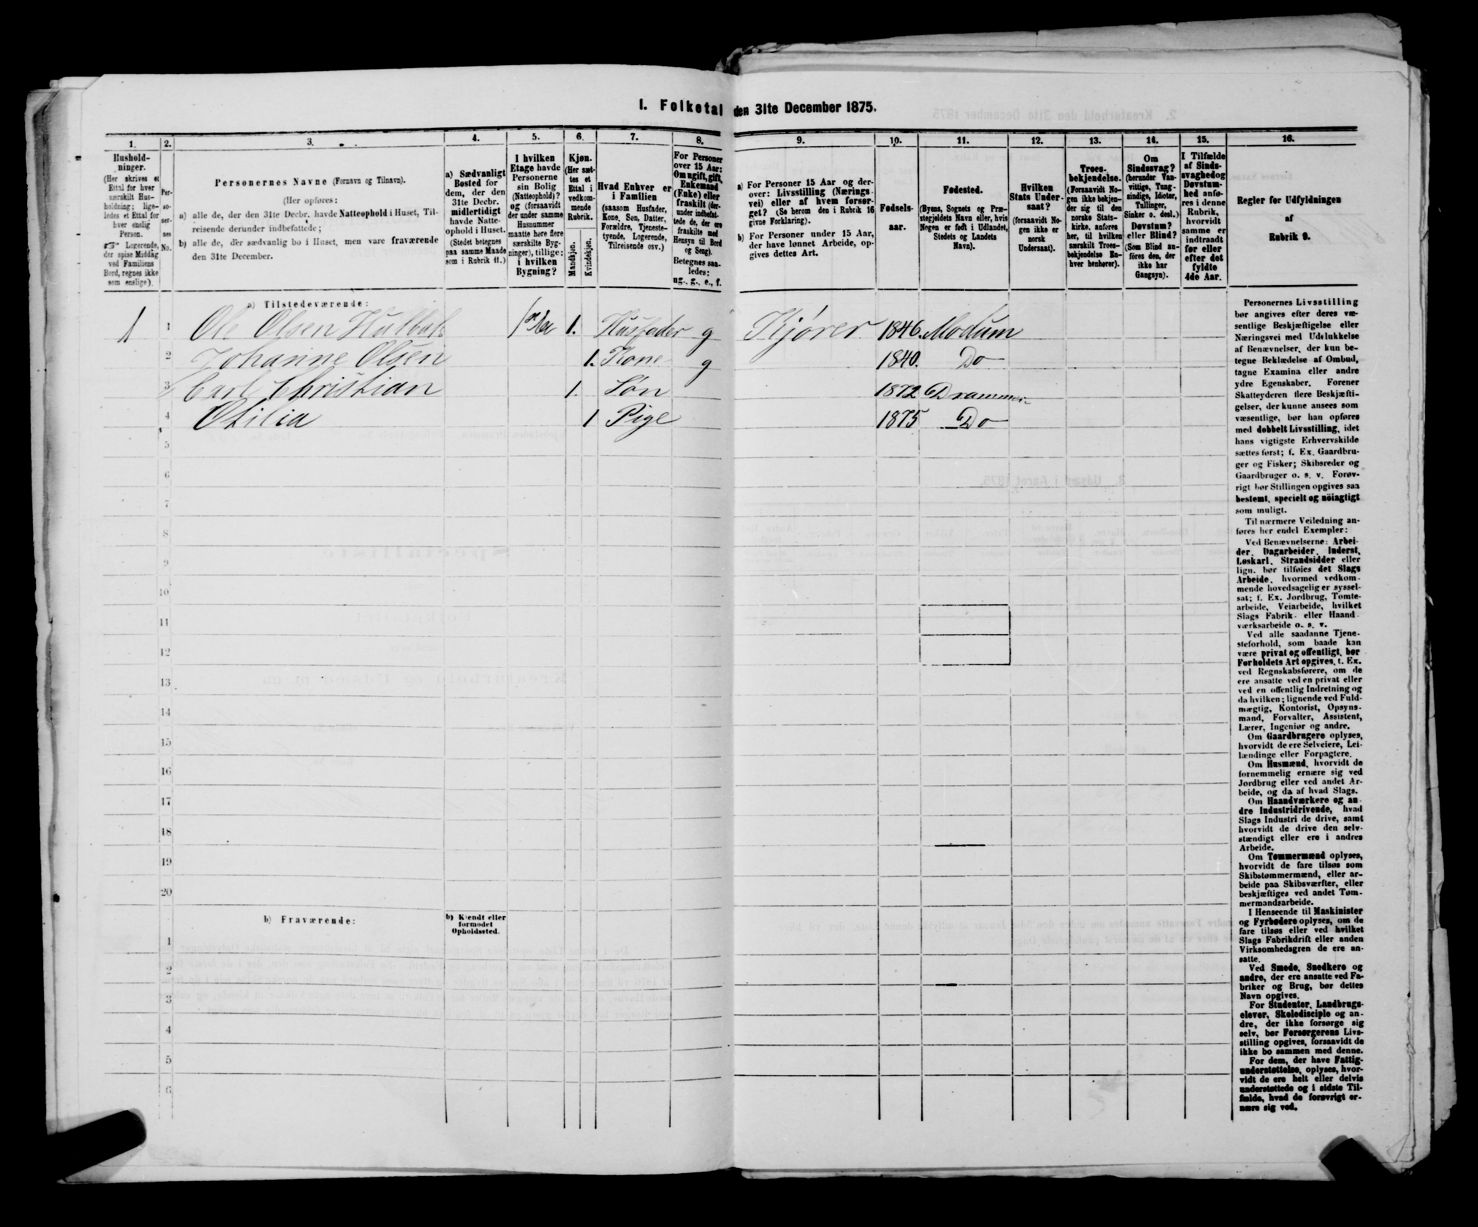 I. Folketal den 31te December 1875.
1. 2. 3. 4. 5. 6. 7. 8. 9. 10. 11. 12. 13. 14. 15. 16.
Hushold-
ninger.
(Her skrives et
Ettal for hver
særskilt Hus-
holdning; lige-
ledes et Ettal for
hver enslig
Person.
☞ Logerende,
der spise Middag
ved Familiens
Bord, regnes ikke
som enslige).
Per-
so-
ner-
nes
No.
Personernes Navne (Fornavn og Tilnavn).
(Her opføres:
a) alle de, der den 31te Decbr. havde Natteophold i Huset, Til-
reisende derunder indbefattede;
b) alle de, der sædvanlig bo i Huset, men vare fraværende
den 31te December.
a) Sædvanligt
Bosted for
dem, der den
31te Decbr.
midlertidigt
havde Natte-
ophold i Huset.
(Stedet betegnes
paa samme Maade
som i Rubrik 11.)
I hvilken
Etage havde
Personerne
sin Bolig
(Natteophold)?
og (forsaavidt
der under samme
Husnummer
maatte høre flere
særskilte Byg-
ninger), tillige:
i hvilken
Bygning?
Kjøn.
(Her sæt-
tes et
Ettal i
vedkom-
mende
Rubrik.
Mandkjøn.
Kvindekjøn.
Hvad Enhver er
i Familien
(saasom Husfader,
Kone, Søn, Datter,
Forældre, Tjeneste-
tyende, Logerende,
Tilreisende osv.)
For Personer
over 15 Aar:
Om ugift, gift,
Enkemand
(Enke) eller
fraskilt (der-
under indbefat-
tede de, der ere
fraskilte med
Hensyn til Bord
og Seng).
Betegnes saa-
ledes:
ug., g., e., f.
a) For Personer 15 Aar og der-
over: Livsstilling (Nærings-
vei) eller af hvem forsør-
get? (Se herom den i Rubrik 16
givne Forklaring).
b) For Personer under 15 Aar,
der have lønnet Arbeide, op-
gives dettes Art.
Fødsels-
aar.
Fødested.
(Byens, Sognets og Præ-
stegjeldets Navn eller, hvis
Nogen er født i Udlandet,
Stedets og Landets
Navn).
Hvilken
Stats Under-
saat?
(forsaavidt No-
gen ikke er
norsk
Undersaat).
Troes-
bekjendelse.
(Forsaavidt No-
gen ikke bekjen-
der sig til den
norske Stats-
kirke, anføres
her, til hvilken
særskilt Troes-
bekjendelse En-
hver henhører).
Om
Sindssvag?
(herunder Van-
vittige, Tung-
sindige, Idioter,
Tullinger,
Sinker o. desl.)
Døvstum?
eller Blind?
(Som Blind an-
føres den, der
ikke har
Gangsyn).
I Tilfælde
af Sinds-
svaghed og
Døvstum-
hed anfø-
res i denne
Rubrik,
hvorvidt
samme er
indtraadt
før eller
efter det
fyldte
4de Aar.
Regler for Udfyldningen
af
Rubrik 9.
a) Tilstedeværende:
1 1 Ole Olsen 1. Husfader g Kjører 1846. Modum
2 Johanne Olsen 1. Kone g 1840. Do
3 Carl Christian 1. Søn 1872 Drammen
4 Otilia 1 Pige 1875 Do
5
6
7
8
9
10
11
12
13
14
15
16
17
18
19
20
b) Fraværende:
b) Kjendt eller
formodet
Opholdssted.
1
2
3
4
5
6
Personernes Livsstilling
bør angives efter deres væ-
sentlige Beskjæftigelse eller
Næringsvei med Udelukkelse
af Benævnelser, der kun be-
tegne Beklædelse af Ombud,
tagne Examina eller andre
ydre Egenskaber. Forener
Skatteyderen flere Beskjæfti-
gelser, der kunne ansees som
væsentlige, bør han opføres
med dobbelt Livsstilling, idet
hans vigtigste Erhvervskilde
sættes først; f. Ex. Gaardbru-
ger og Fisker; Skibsreder og
Gaardbruger o. s. v. Forøv-
rigt bør Stillingen opgives saa
bestemt, specielt og nöiagtigt
som muligt.
Til nærmere Veiledning an-
føres her endel Exempler:
Ved Benævnelserne: Arbei-
der, Dagarbeider, Inderst,
Løskarl, Strandsidder eller
lign. bør tilføies det Slags
Arbeide, hvormed vedkom-
mende hovedsagelig er syssel-
sat; f. Ex. Jordbrug, Tomte-
arbeide, Veiarbeide, hvilket
Slags Fabrik- eller Haand-
værksarbeide o. s. v.
Ved alle saadanne Tjene-
steforhold, som baade kan
være privat og offentligt, bør
Forholdets Art opgives, t. Ex.
ved Regnskabsførere, om de
ere ansatte ved en privat eller
ved en offentlig Indretning og
da hvilken; lignende ved Fuld-
mægtig, Kontorist, Opsyns-
mand, Forvalter, Assistent,
Lærer, Ingeniør og andre.
Om Gaardbrugere oplyses,
hvorvidt de ere Selveiere, Lei-
lændinge eller Forpagtere.
Om Husmænd, hvorvidt de
fornemmelig ernære sig ved
Jordbrug eller ved andet Ar-
beide, og da af hvad Slags.
Om Haandværkere og an-
dre Industridrivende, hvad
Slags Industri de drive, samt
hvorvidt de drive den selv-
stændigt eller ere i andres
Arbeide.
Om Tømmermænd oplyses,
hvorvidt de fare tilsøs som
Skibstømmermænd, eller ar-
beide paa Skibsværfter, eller
beskjæftiges ved andet Tøm-
mermandsarbeide.
I Henseende til Maskinister
og Fyrbødere oplyses, om de
fare tilsøs eller ved hvilket
Slags Fabrikdrift eller anden
Virksomhedsgren de ere an-
satte.
Ved Smede, Snedkere og
andre, der ere ansatte ved Fa-
briker og Brug, bør dettes
Navn opgives.
For Studenter, Landbrugs-
elever, Skoledisciple og an-
dre, der ikke forsørge sig
selv, bør Forsørgerens Livs-
stilling opgives, forsaavidt de
ikke bo sammen med denne.
For dem, der have Fattig-
understøttelse, oplyses, hvor-
vidt de ere helt eller delvis
understøttede og i sidste Til-
fælde, hvad de forøvrigt er-
nære sig ved.